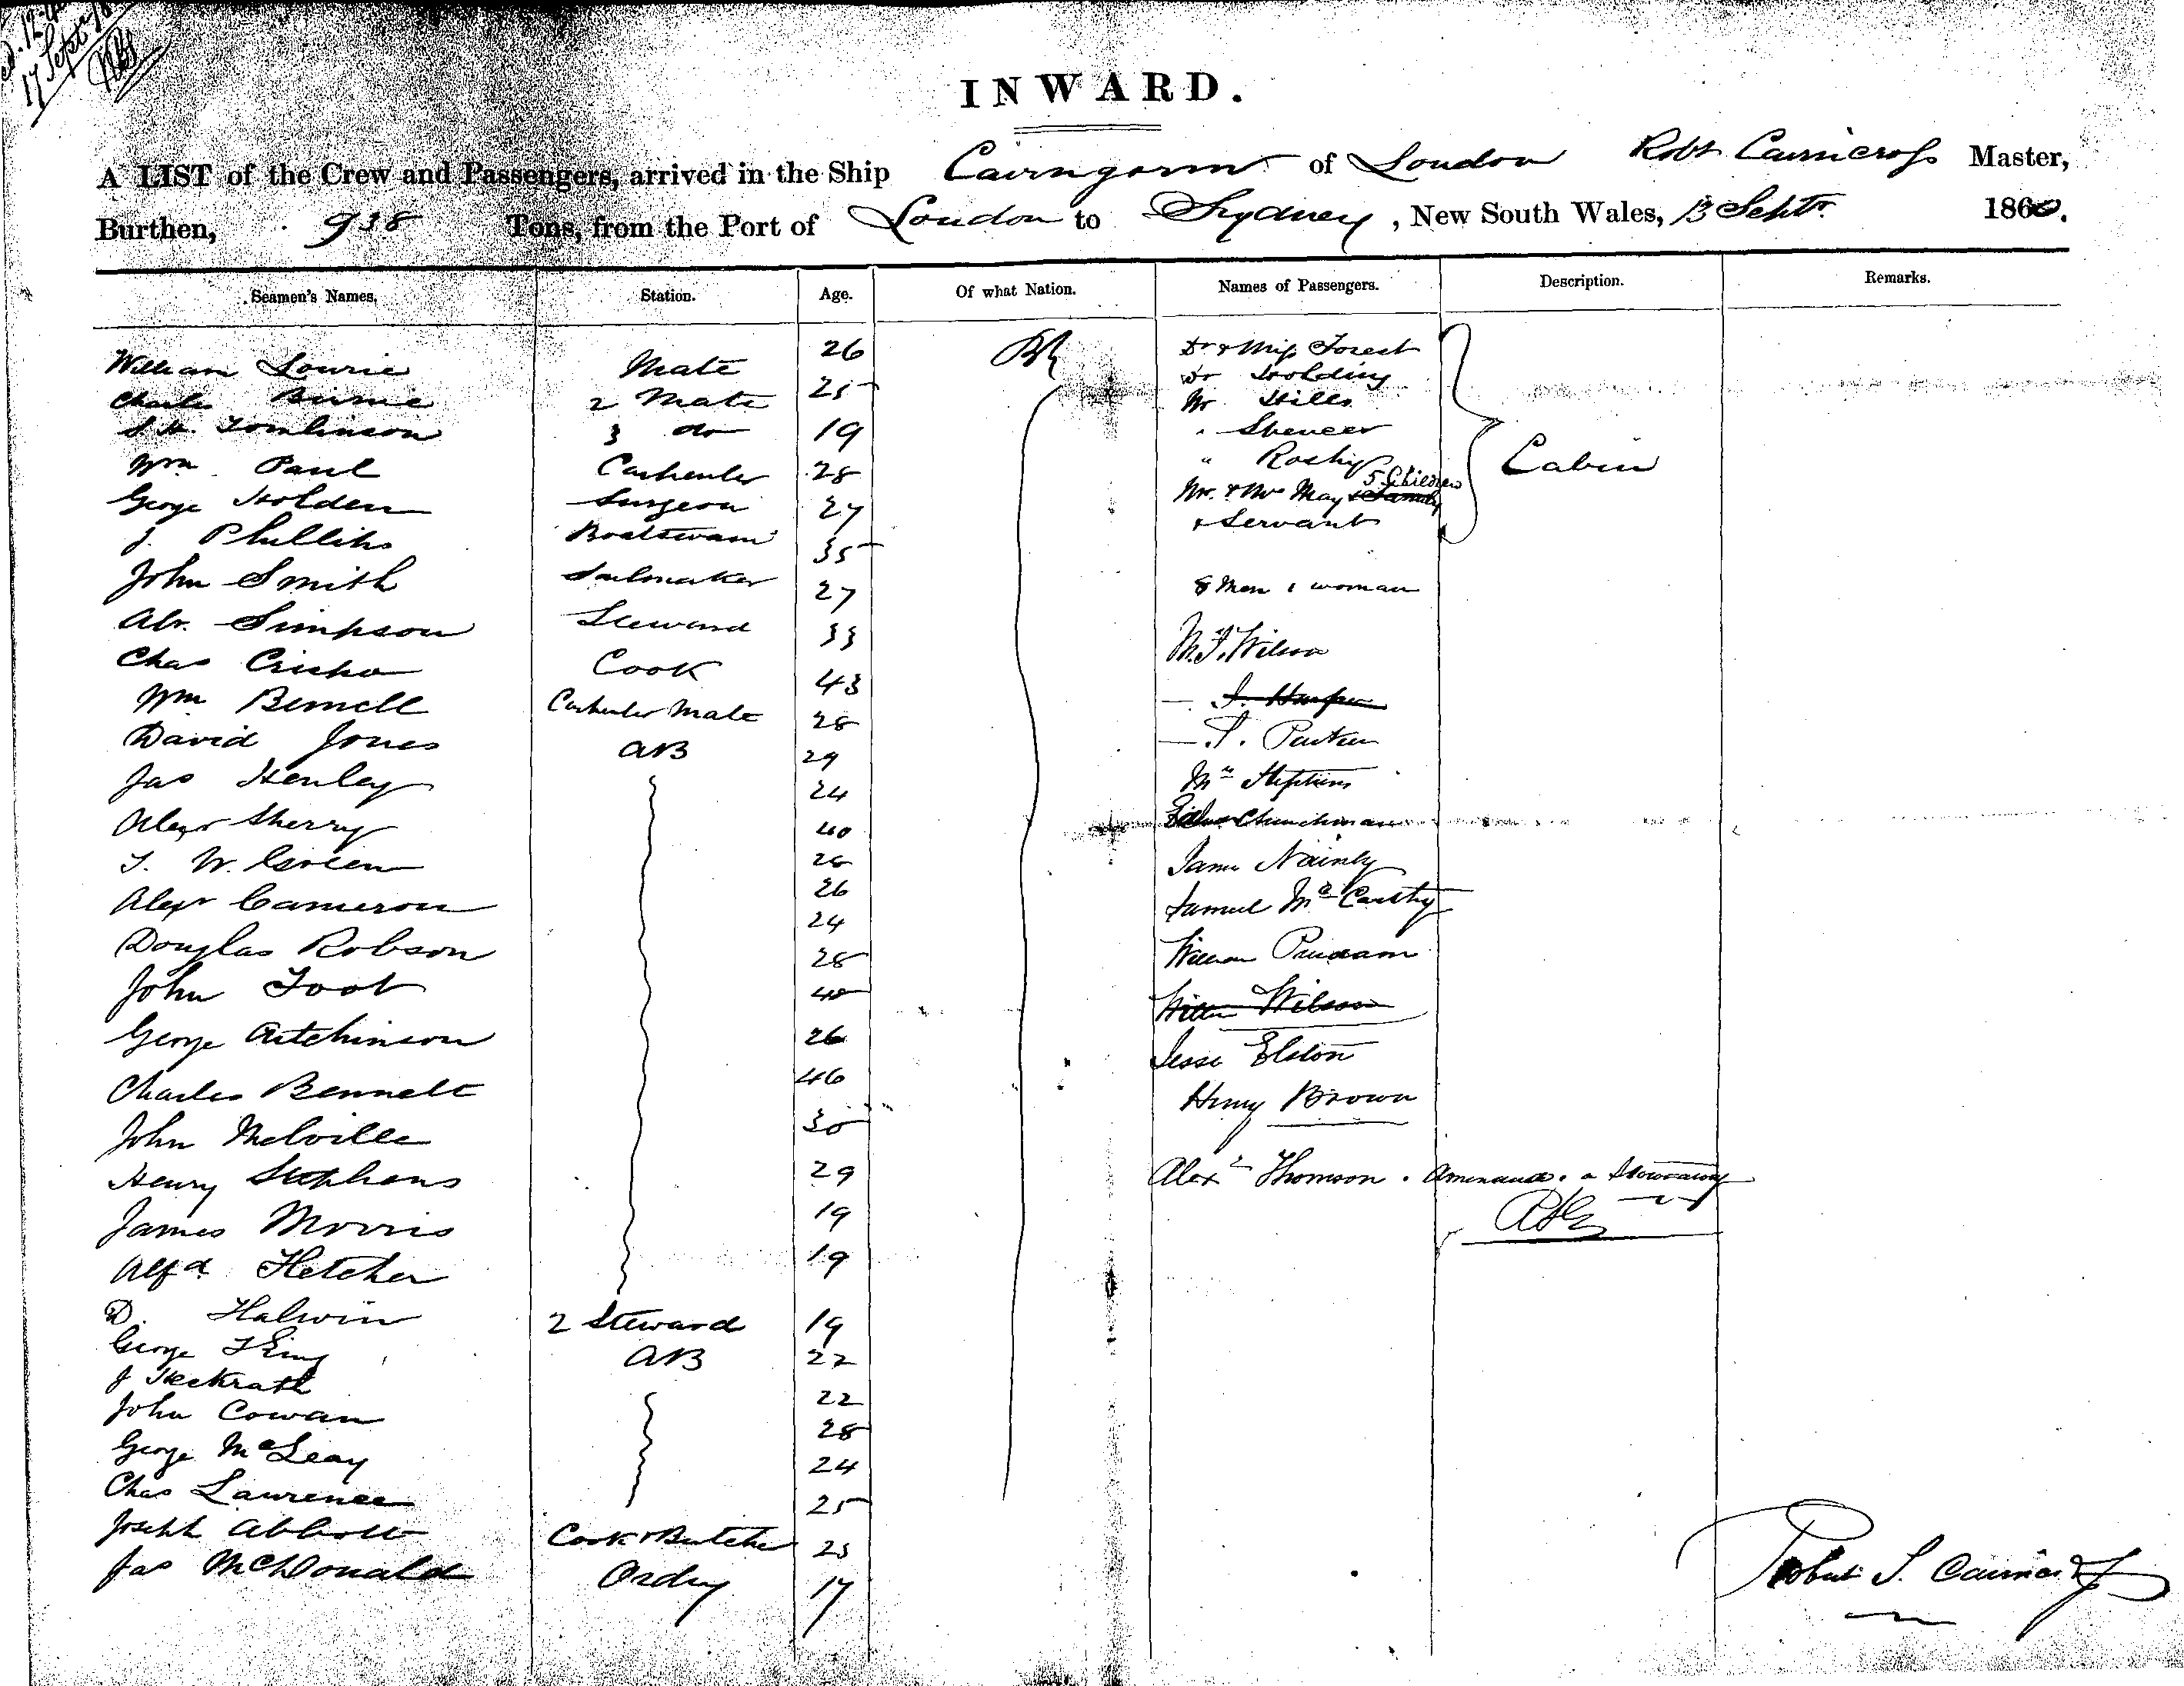 17 Septr
INWARD.
A LIST of the Crew and Passengers, arrived in the Ship Cairngorm of London Robt Cairncross Master,
Burthen, 938 Tons, from the Port of London to Sydney, New South Wales, 13 Septr. 1860.
Seamen's Names. Station. Age. Of what Nation. Names of Passengers. Description. Remarks.
William Lourie Mate 26
Charles Birnie 2 Mate 25
S.H. Tomlinson 3 do 19
Wm Paul Carpenter 28
George Holden Surgeon 27
J. Phillips Boatswain 35
John Smith Sailmaker 27
Alr. Simpson Steward 33
Chas Crisho Cook 43
Wm Bennell Carpenter Mate 28
David Jones AB 29
Jas Henley 24
Alexr Sherry 40
T. W. Green 26
Alexr Cameron 26
Douglas Robson 24
John Foot 28
George Aitchinson 40
Charles Bennett 26
John Melville 46
Henry Stephens 30
James Morris 29
Alfd Fletcher 19
D. Halwin 2 Steward 19
George King AB 22
J Heckrath 22
John Cowan 28
George McLeay 24
Chas Lawrence 25
Joseph Abbott Cook & Butcher 23
Jas McDonald Ordry 17
Dr & Miss Forest
Dr Holding
Mr Hills
" Spencer
" Rashy
Mr. & Mrs May & Family 5 Children
& Servant
Cabin
8 Men 1 woman
M. F. Wilson
— J. Harper
— T. Parker
Mrs Stephens
Churchman
Jane Nainby
Samuel McCarthy
William Prudam
William Wilson
Jesse Elston
Henry Brown
Alexr Thomson. Amenaud. a Stowaway
Robert S. Cairncross